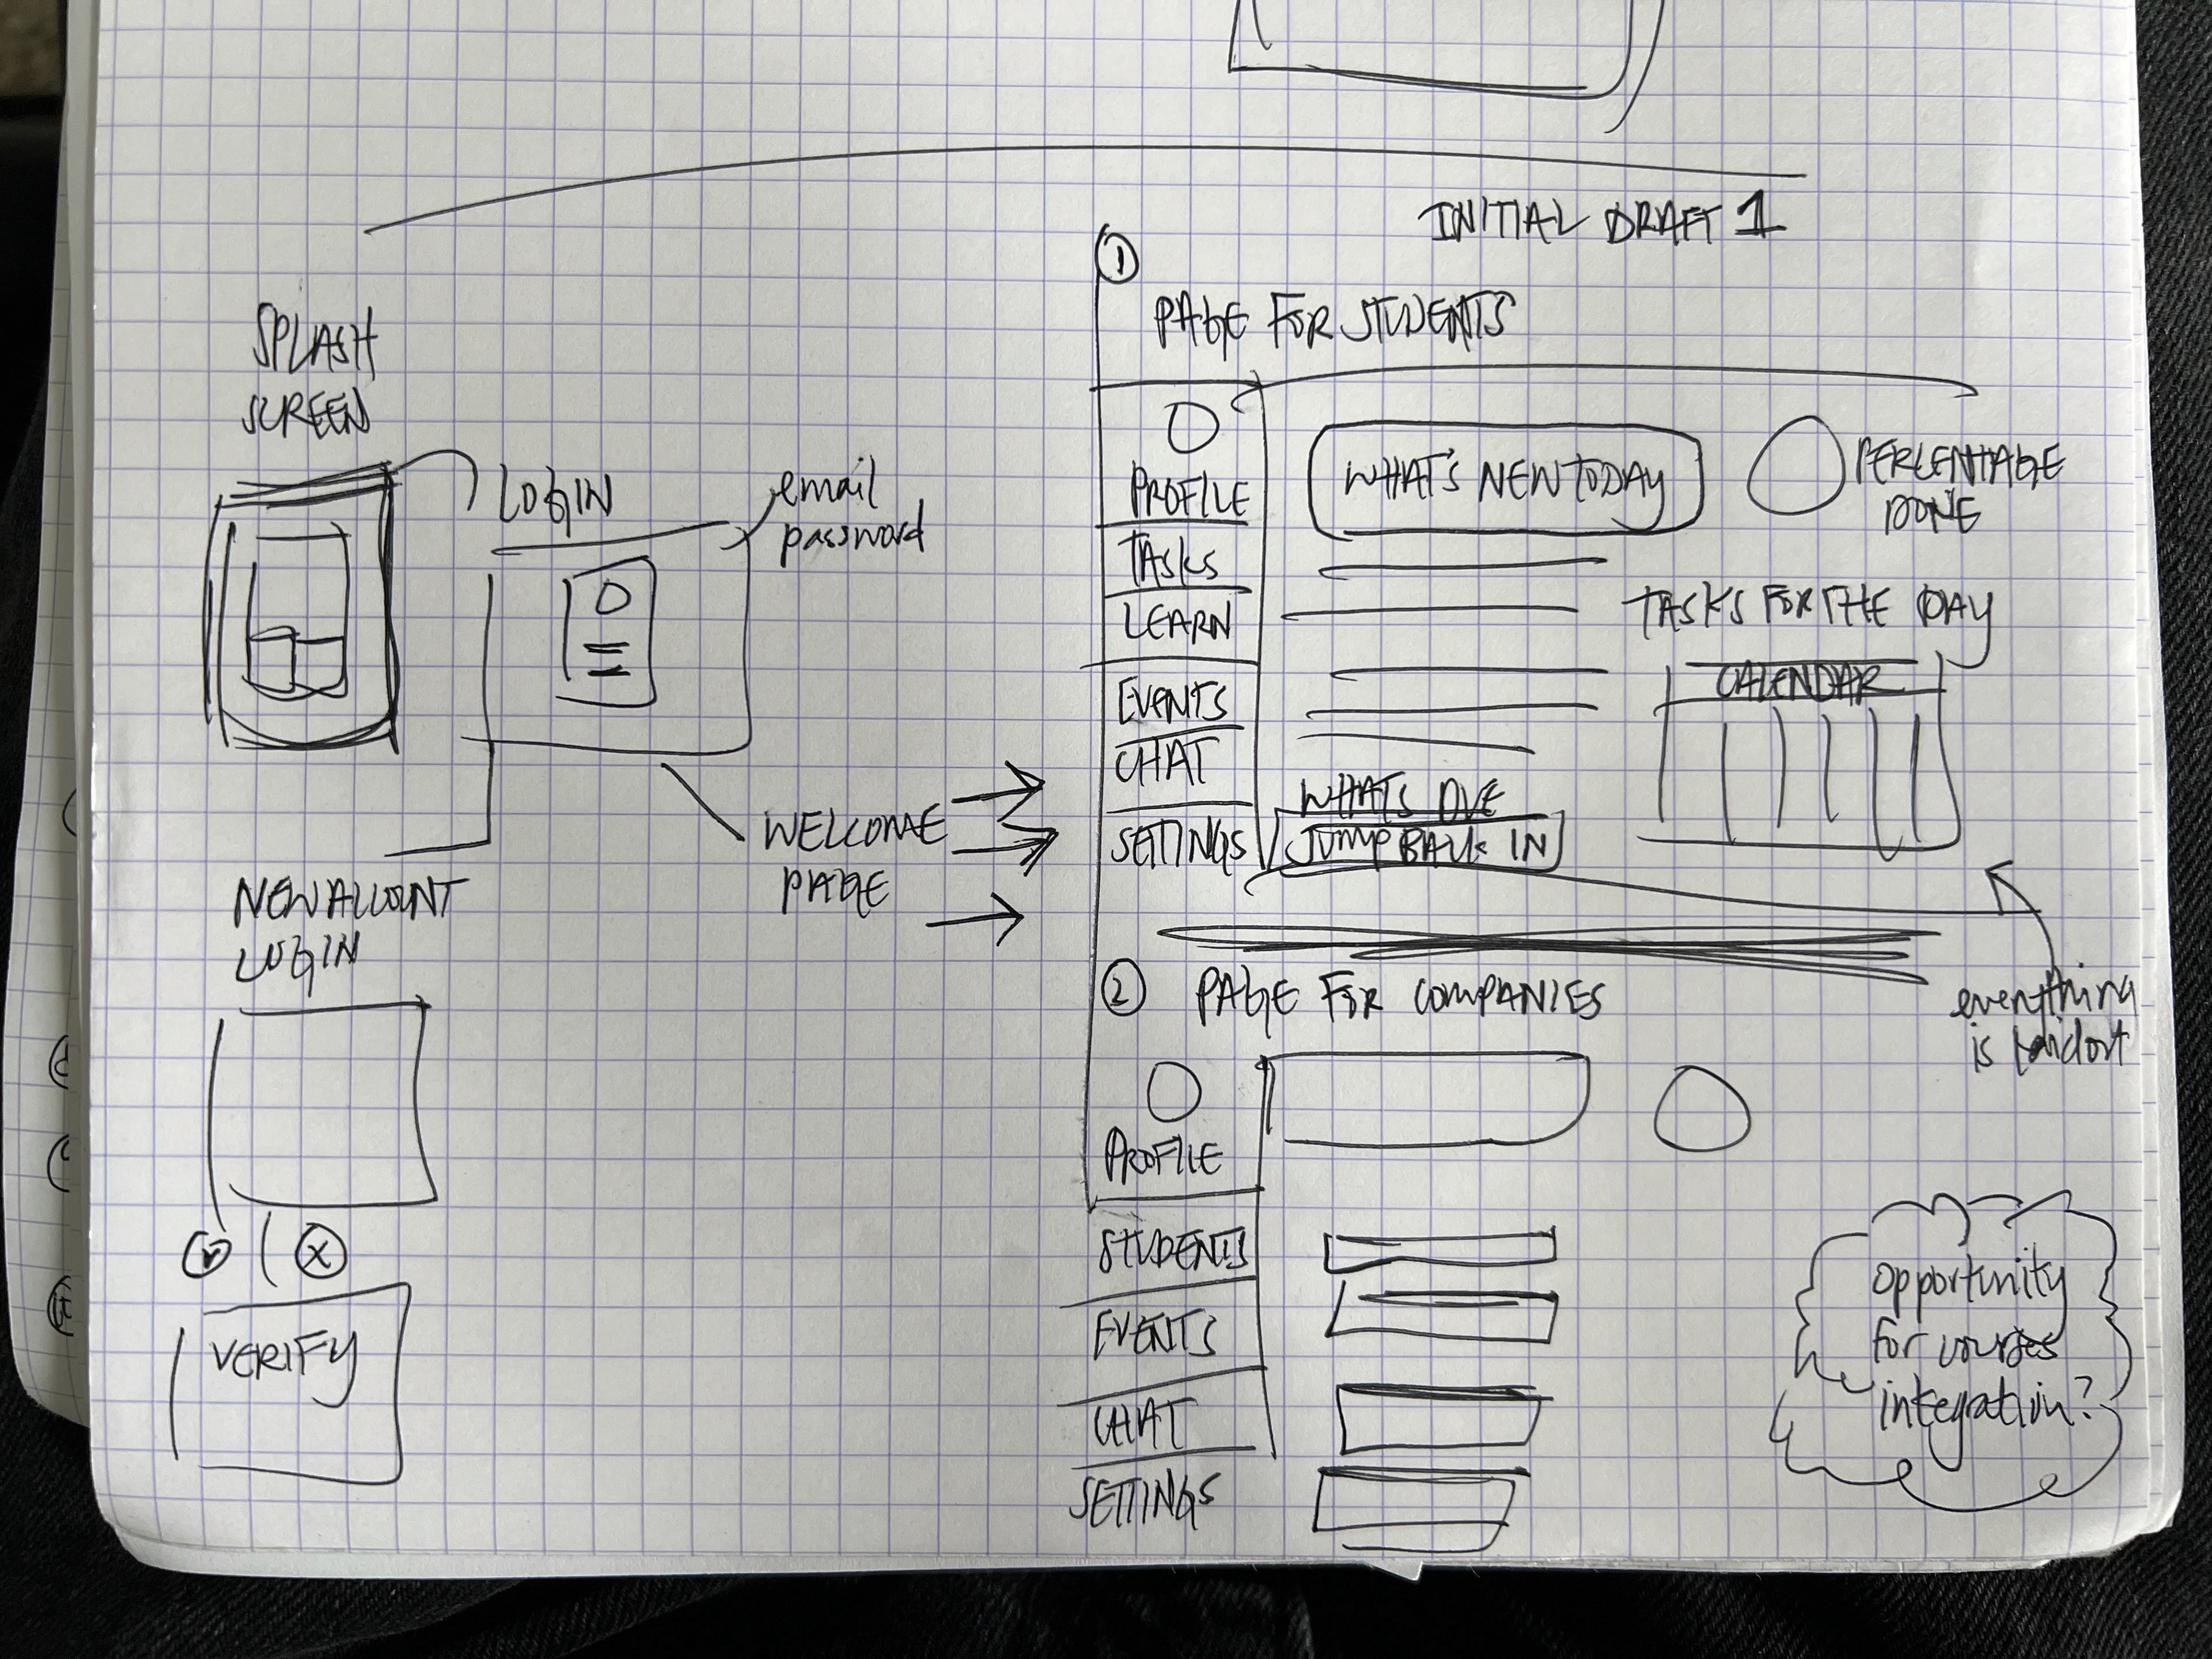 INITIAL DRAFT 1
SPLASH
SCREEN
LOGIN
email
password
NEW ACCOUNT
LOGIN
VERIFY
WELCOME
PAGE
1
PAGE FOR STUDENTS
PROFILE
TASKS
LEARN
EVENTS
CHAT
SETTINGS
WHAT'S NEW TODAY
PERCENTAGE
DONE
TASKS FOR THE DAY
CALENDAR
WHATS DUE
JUMP BACK IN
everything
is laid out
2 PAGE FOR COMPANIES
PROFILE
STUDENTS
EVENTS
CHAT
SETTINGS
opportunity
for courses
integration?